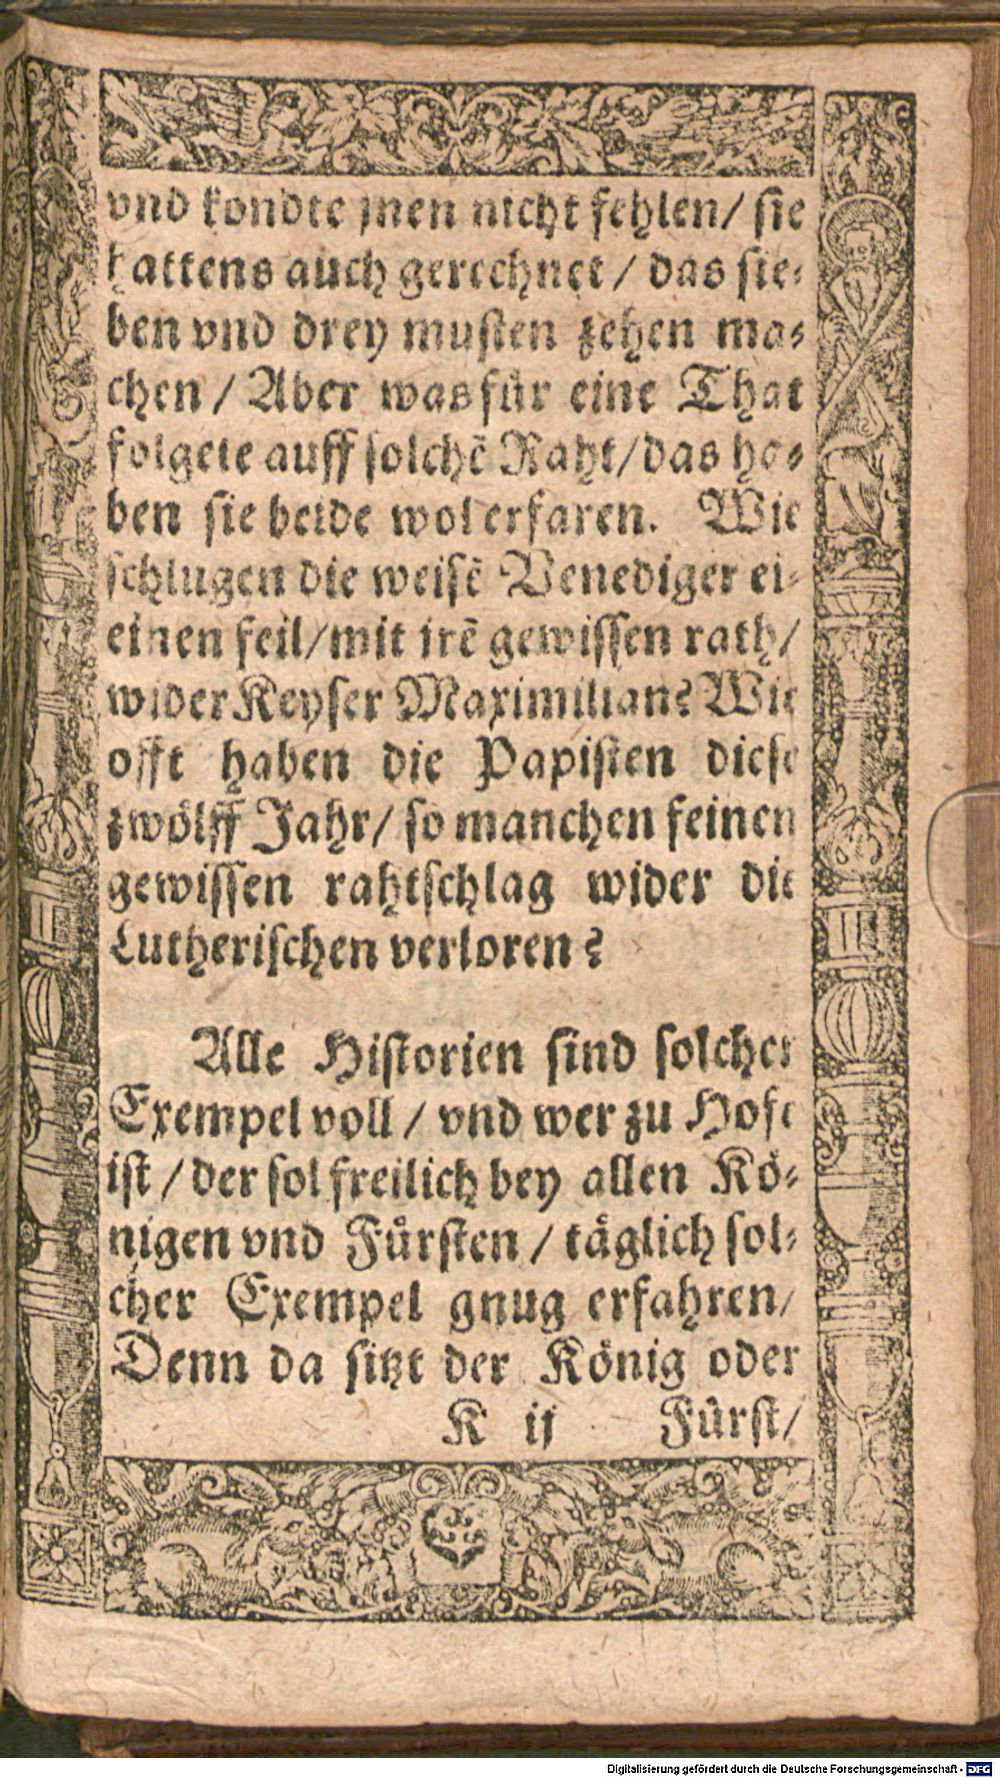 vnd kondte jnen nicht fehlen/ sie
hattens auch gerechnet/ das sie⸗
ben vnd drey musten zehen ma⸗
chen/ Aber was für eine That
folgete auff solchẽ Raht/ das ha⸗
ben sie beide wol erfaren. Wie
schlugen die weisẽ Venediger ei⸗
einen feil/ mit irẽ gewissen rath/
wider Keyser Maximilian? Wie
offt haben die Papisten diese
zwölff Jahr/ so manchen feinen
gewissen rahtschlag wider die
Lutherischen verloren?
Alle Historien sind solcher
Exempel voll/ vnd wer zu Hofe
ist/ der sol freilich bey allen Kö⸗
nigen vnd Fürsten/ täglich sol⸗
cher Exempel gnug erfahren/
Denn da sitzt der König oder
K ij Fürst/
Digitalisierung gefördert durch die Deutsche Forschungsgemeinschaft - DFG